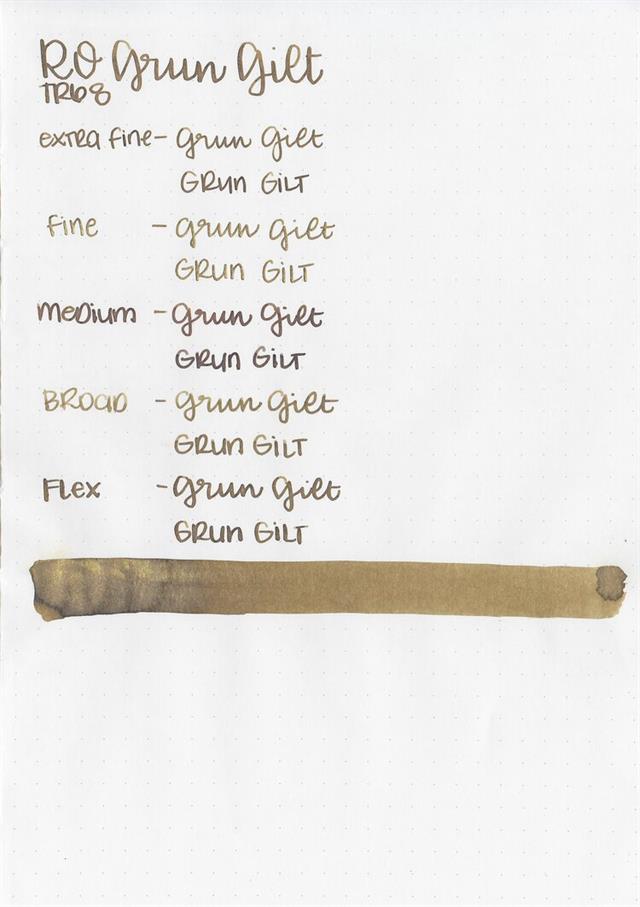 RO Grun Gilt
TR68
extra fine - Grun Gilt
GRUN GILT
fine - Grun Gilt
GRUN GILT
Medium - Grun Gilt
GRUN GILT
BROAD - Grun Gilt
GRUN GILT
FLex - Grun Gilt
GRUN GILT